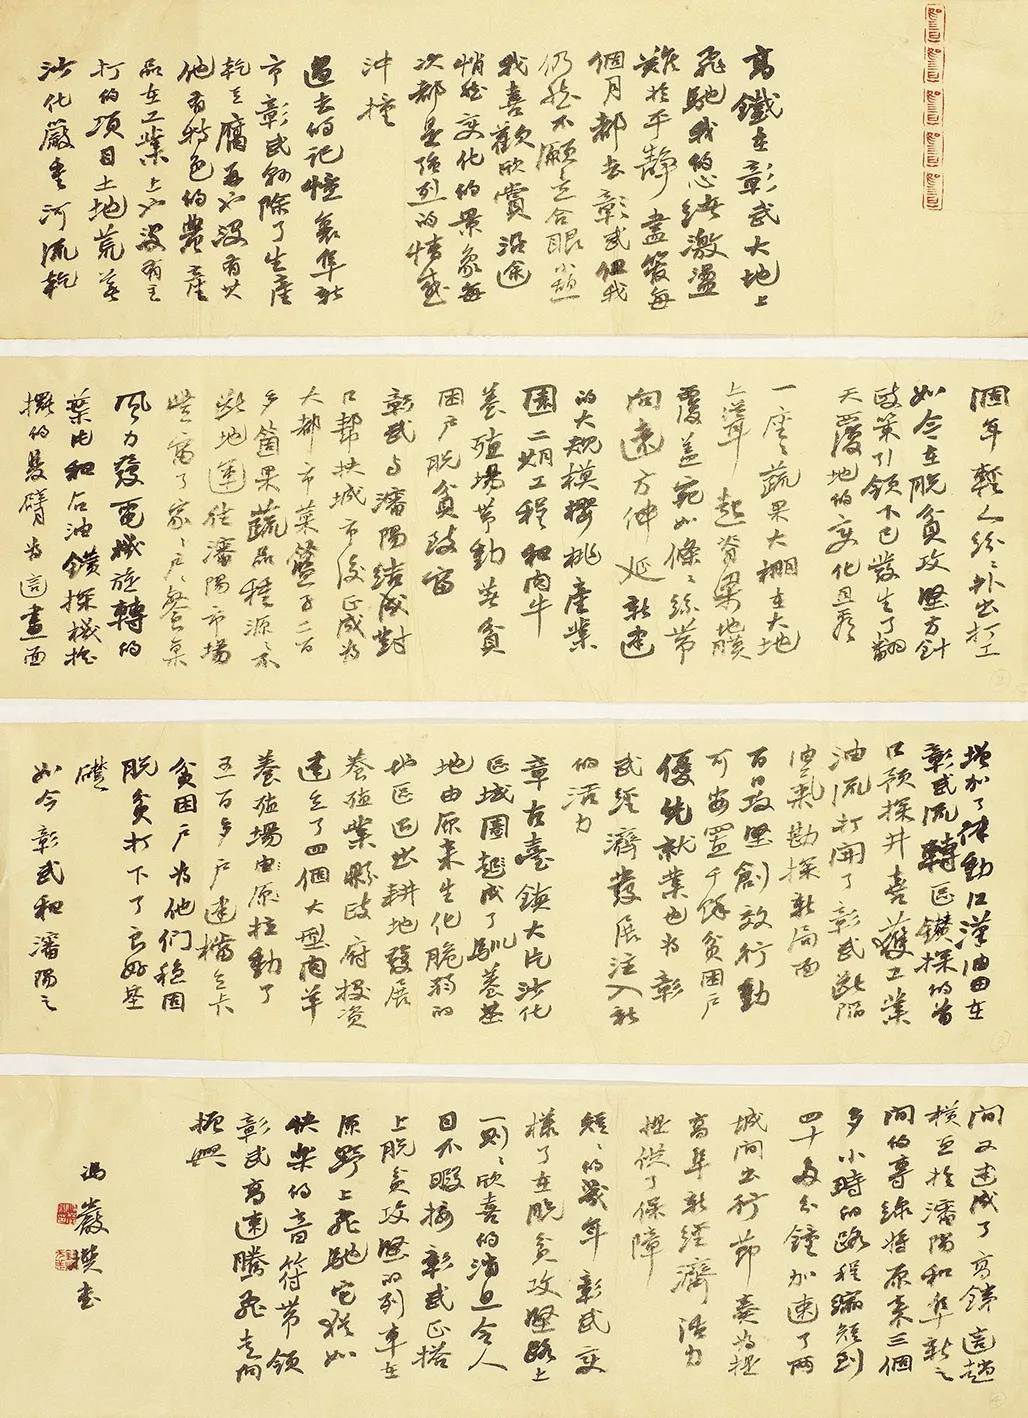 高鐵在彰武大地上
飛馳我的心緒激盪
難於平靜儘管每
個月都去彰武但我
仍然不願意合眼小憩
我喜歡欣賞沿途
悄然變化的景象每
次都是強烈的情感
沖撞
過去的記憶裏阜新
市彰武縣除了生產
乾豆腐再沒有其
他有特色的農產
品在工業上沒有主
打的項目土地荒蕪
沙化嚴重河流乾
涸年輕人紛紛外出打工
如今在脫貧攻堅方針
政策引領下已發生了翻
天覆地的變化
一座座蔬果大棚在大地
上聳起脊梁地膜
覆蓋宛如條條絲帶
向遠方伸延新建
的大規模櫻桃產業
園二期工程和肉牛
養殖場帶動無貧
困戶脫貧致富
彰武與瀋陽結成對
口幫扶城市後正成為
大都市菜籃子二百
多箇果蔬品種源源不
斷地運往瀋陽市場
豐富了家家戶戶餐桌
風力發電機旋轉的
葉片和石油鑽探機搖
擺的長臂為這畫面
增加了律動江漢油田在
彰武流轉區鑽探的首
口預探井喜獲工業
油流打開了彰武斷陷
油氣勘探新局面
百日攻堅創效行動
可安置千餘貧困戶
優先就業也為彰
武經濟發展注入新
的活力
章古臺鎮大片沙化
區域圍起成了馴養基
地由原來生化脆弱的
地區退出耕地發展
養殖業縣政府投資
建立了四個大型肉羊
養殖場由原拉動了
五百多戶建檔立卡
貧困戶為他們穩固
脫貧打下了良好基
礎
如今彰武和瀋陽之
間又建成了高鐵這趟
橫亘於瀋陽和阜新之
間的專線將原來三個
多小時的路程縮短到
四十多分鐘加速了兩
城間出行節奏為提
高阜新經濟活力
提供了保障
短短的幾年彰武變
樣了在脫貧攻堅路上
一則則欣喜的消息令人
目不暇接彰武正搭
上脫貧攻堅的列車在
原野上飛馳它猶如
快樂的音符帶領
彰武高速騰飛走向
振興
馮嚴撰書